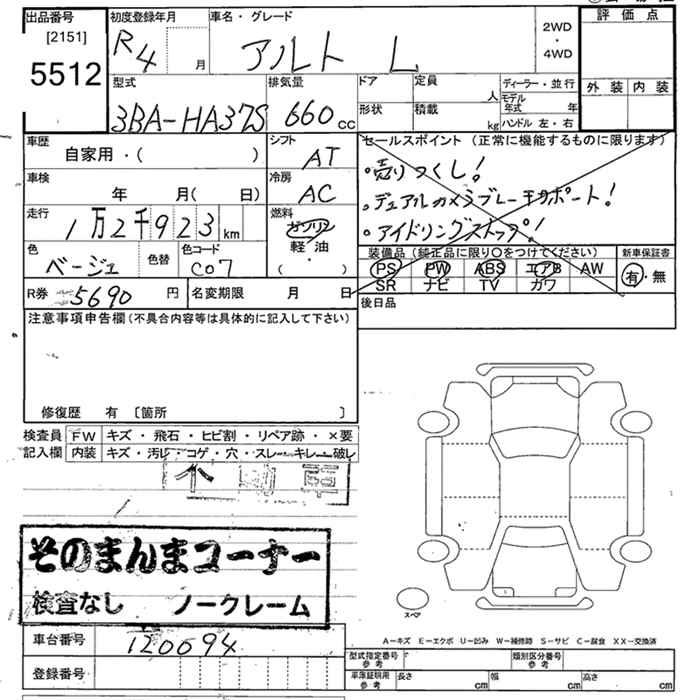 出品番号
[2151]
5512
初度登録年月
R4 月
車名・グレード
アルト L
2WD
・
4WD
評価点
外装 内装
型式
3BA-HA37S
排気量
660 cc
ドア
形状
定員 人
積載 kg
ディーラー・並行
モデル年式 年
ハンドル 左・右
車歴
自家用・( )
シフト
AT
車検
年 月( 日)
冷房
AC
走行
1万2千923 km
燃料
ガソリン
軽・油
( )
色
ベージュ
色替
色コード
C07
セールスポイント (正常に機能するものに限ります)
・売りつくし!
・デュアルカメラブレーキサポート!
・アイドリングストップ!
装備品(純正品に限り○をつけてください)
PS PW ABS エアB AW
SR ナビ TV カワ
新車保証書
有・無
R券 5690 円
名変期限 月 日
後日品
注意事項申告欄(不具合内容等は具体的に記入して下さい)
修復歴 有 〔箇所 〕
検査員 FW キズ・飛石・ヒビ割・リペア跡・×要
記入欄 内装 キズ・汚れ・コゲ・穴・スレ・キレ・破レ
そのまんまコーナー
検査なし ノークレーム
スペア
A−キズ E−エクボ U−凹み W−補修跡 S−サビ C−腐食 XX−交換済
車台番号 120694
登録番号
型式指定番号
参考
類別区分番号
参考
車庫証明用
参考
長さ cm 幅 cm 高さ cm